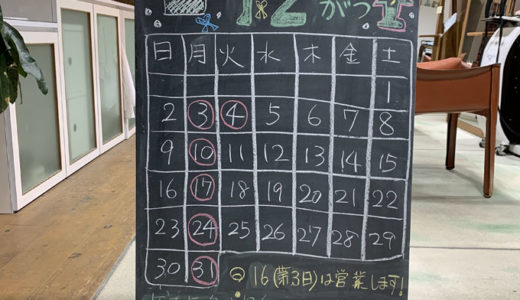 12がつ
日 月 火 水 木 金 土
1
2 3 4 5 6 7 8
9 10 11 12 13 14 15
16 17 18 19 20 21 22
23 24 25 26 27 28 29
30 31
16(第3日)は営業します!